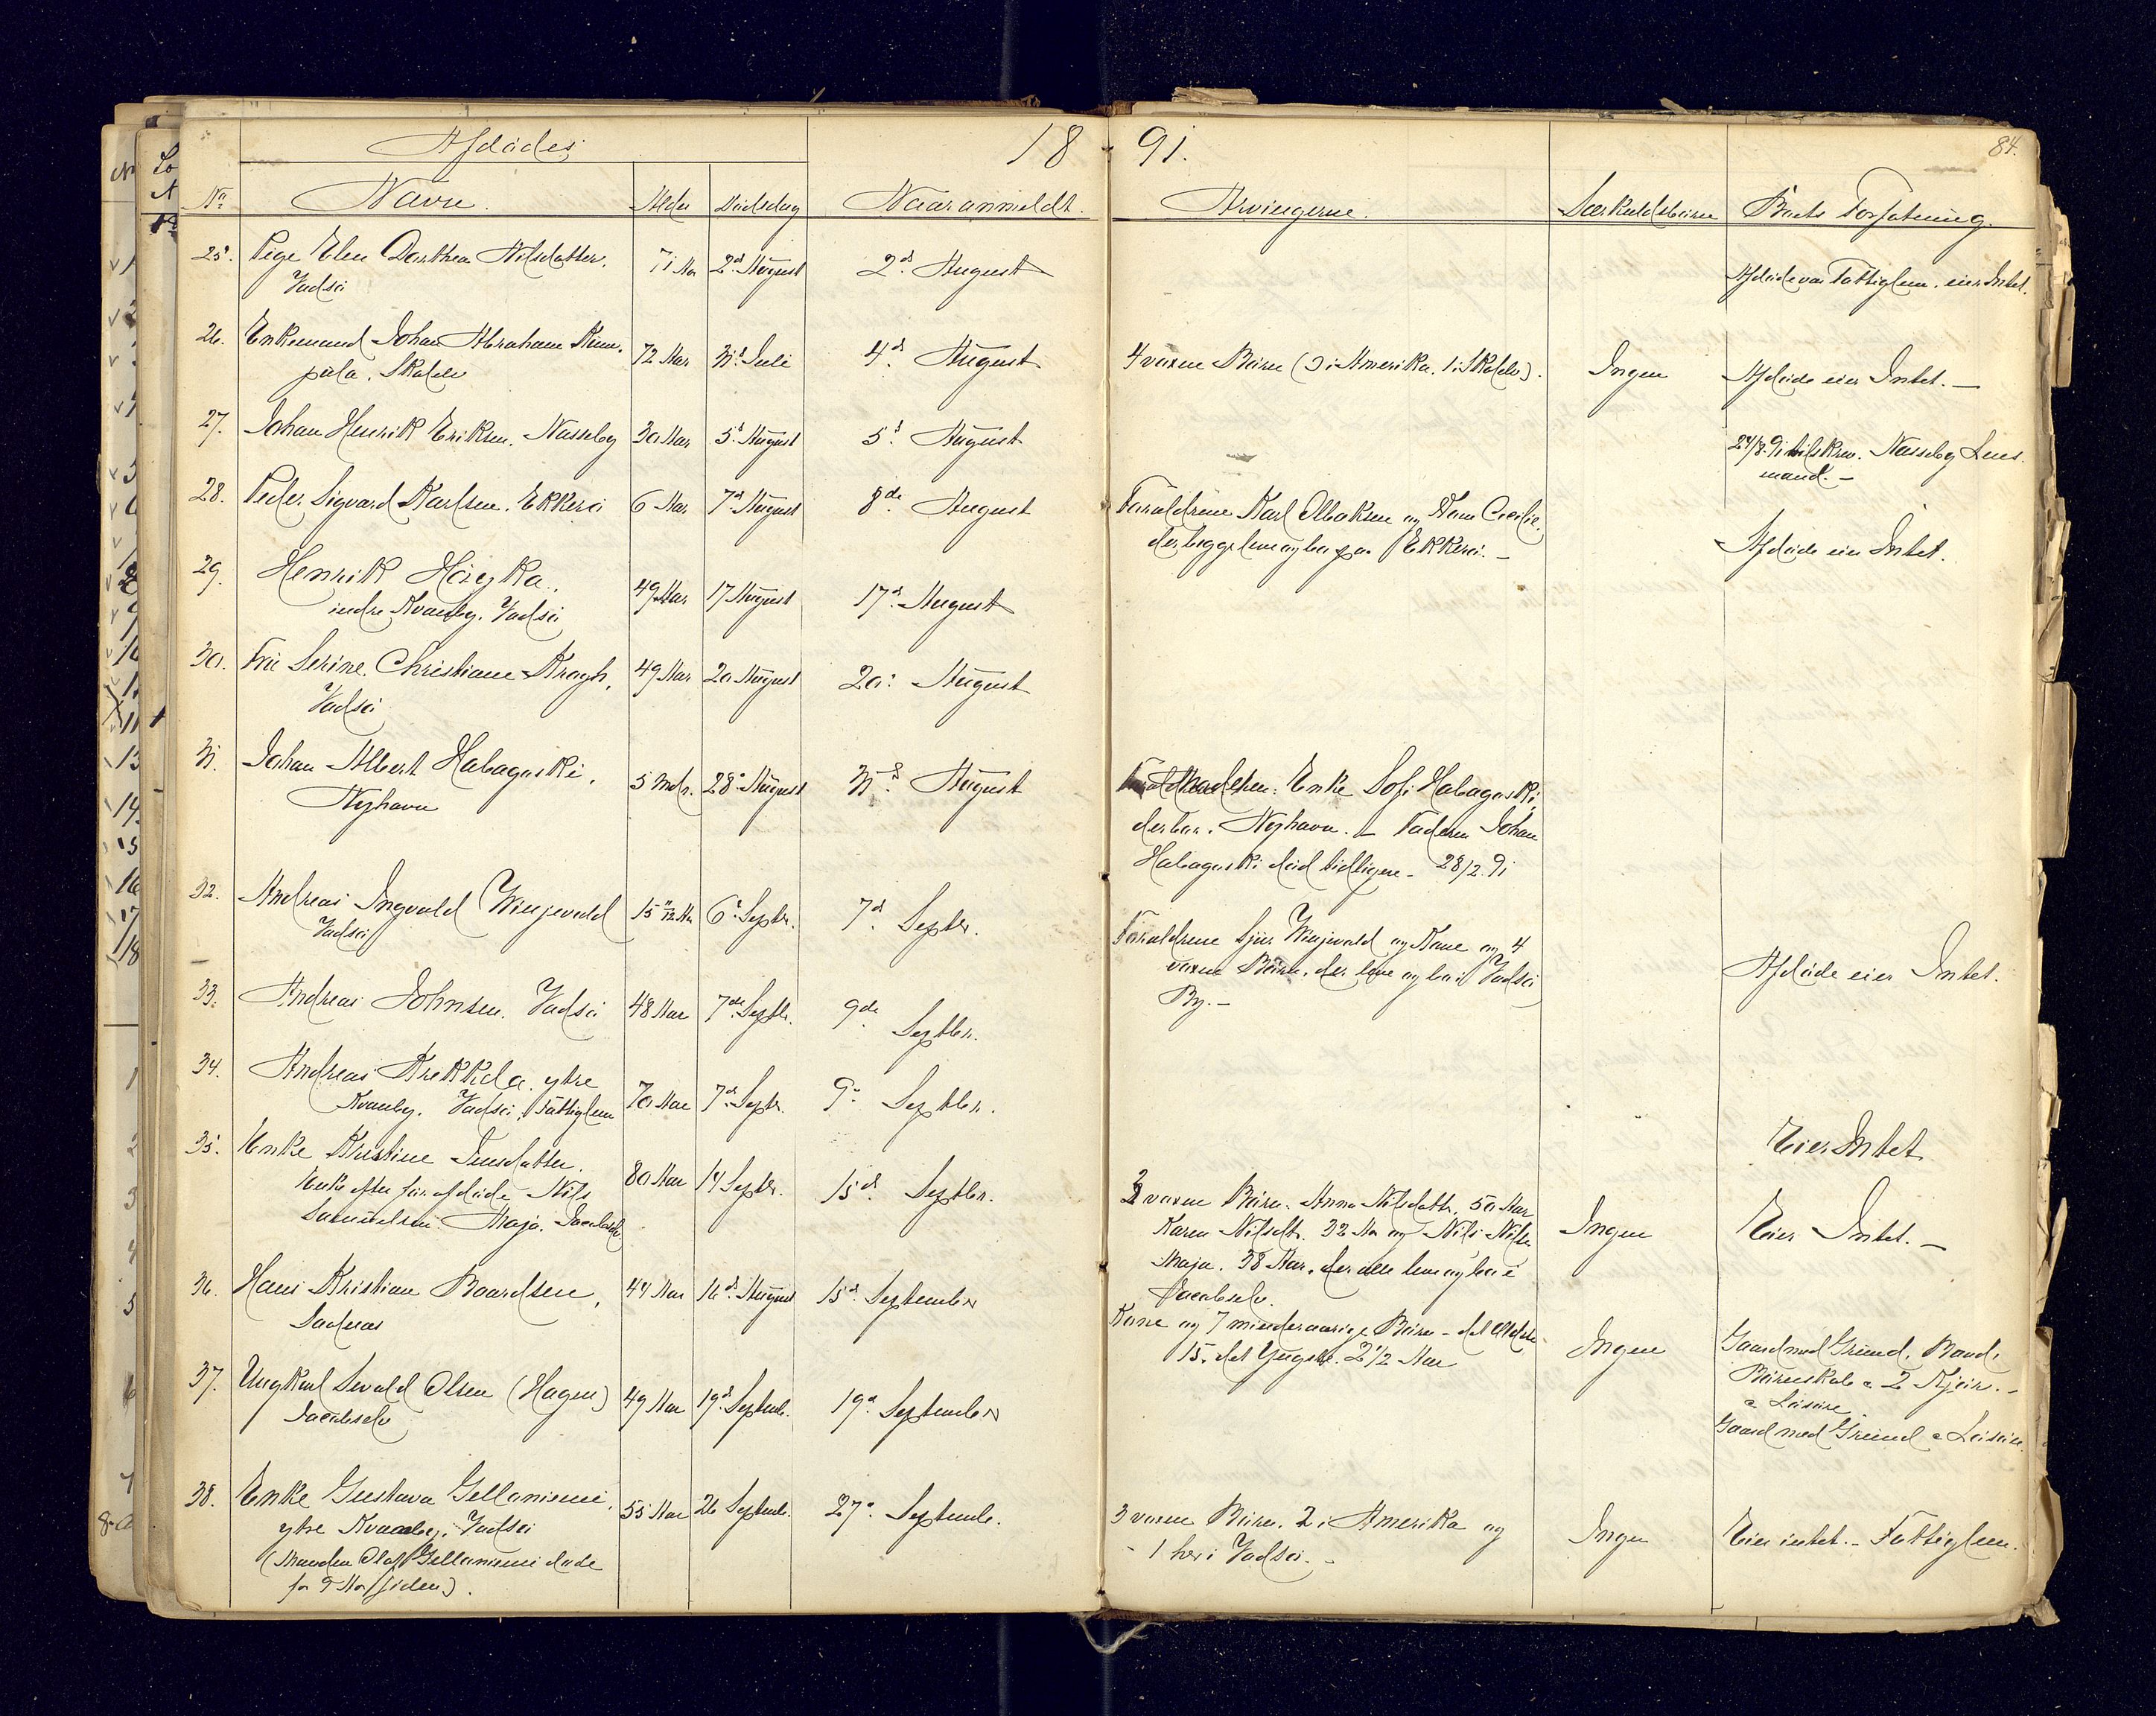 Afdødes
18 91.
84.
No Navn. Alder Dødsdag Naar anmeldt. Arvingerne. Særkuldsbørn Boets Forfatning.
25. Pige Elen Dorthea Nilsdatter. 71 Aar 2d August 2d August
Vadsø
Afdøde var Fattiglem, eier Intet.
26. Enkemand Johan Abraham Kum- 72 Aar 31t Juli 4d August 4 voxne Børn (3 i Amerika. 1 i Skalelv). Ingen Afdøde eier Intet. —
pula. Skalelv
27. Johan Henrik Eriksen. Næsseby 30 Aar 5t August 5t August
24/8 91 tilskrev. Næsseby Lens-
mand. —
28. Peder Sigvard Karlsen. Ekkerø 6 Aar 7d August 8de August Forældrene Karl Olloksen og Kone Cecilie,
der begge leve og bo paa Ekkerø. — Afdøde eier Intet.
29. Henrik 49 Aar 17 August 17d August
indre Kvænby. Vadsø
30. Frú Serine Christiane Kragh, 49 Aar 20 August 20. August
Vadsø
31. Johan Albert Habagoski. 5 Mdr. 28. August 31t August
Nyhavn
Moderen: Enke Sofi Habagoski,
der bor i Nyhavn. — Faderen Johan
Habagoski død tidligere - 28/2 91
32. Andreas Ingvald Winjevold 15 11/12 Aar 6. Septbr. 7d Septbr.
Vadsø
Forældrene Sjur Winjevold og Kone og 4
voxne Børn, der leve og bo i Vadsø
By. —
Afdøde eier Intet.
33. Andreas Johnsen. Vadsø 48 Aar 7de Septbr. 9de Septbr.
34. Andreas Krekkela. ytre 70 Aar 7d Septbr. 9. Septbr.
Kvænby. Vadsø, Fattiglem
Eier Intet
35. Enke Kristine Jensdatter. 80 Aar 14 Septbr. 15d Septbr.
Enke efter før afdøde Nils
Samuelsen Maja. Jacobselv
3 voxne Børn. Anna Nilsdatt. 50 Aar
Karen Nilsdtr. 32 Aar og Nils Nilsen
Maja. 38 Aar. der alle leve og bo i
Jacobselv.
Ingen Eier Intet. —
36. Hans Kristian Baardsen, 44 Aar 16d August 15d September
Kone og 7 mindreaarige Børn - det Ældste
15. det Yngste. 2 1/2 Aar
Ingen Gaard med Grund, Baad,
2 Kjør. —
37. Ungkarl Sivald Olsen (Hagen) 49 Aar 19d Septemb. 19d September
Jacobselv
Gaard med Grund
38. Enke Gustava Gellaniemi, 55 Aar 26 Septemb. 27d Septemb.
ytre Kvænby. Vadsø
(Manden Olaf Gellaniemi døde
for 9 Aar siden).
3 voxne Børn. 2 i Amerika og
- 1 her i Vadsø. —
Ingen Eier intet. — Fattiglem.